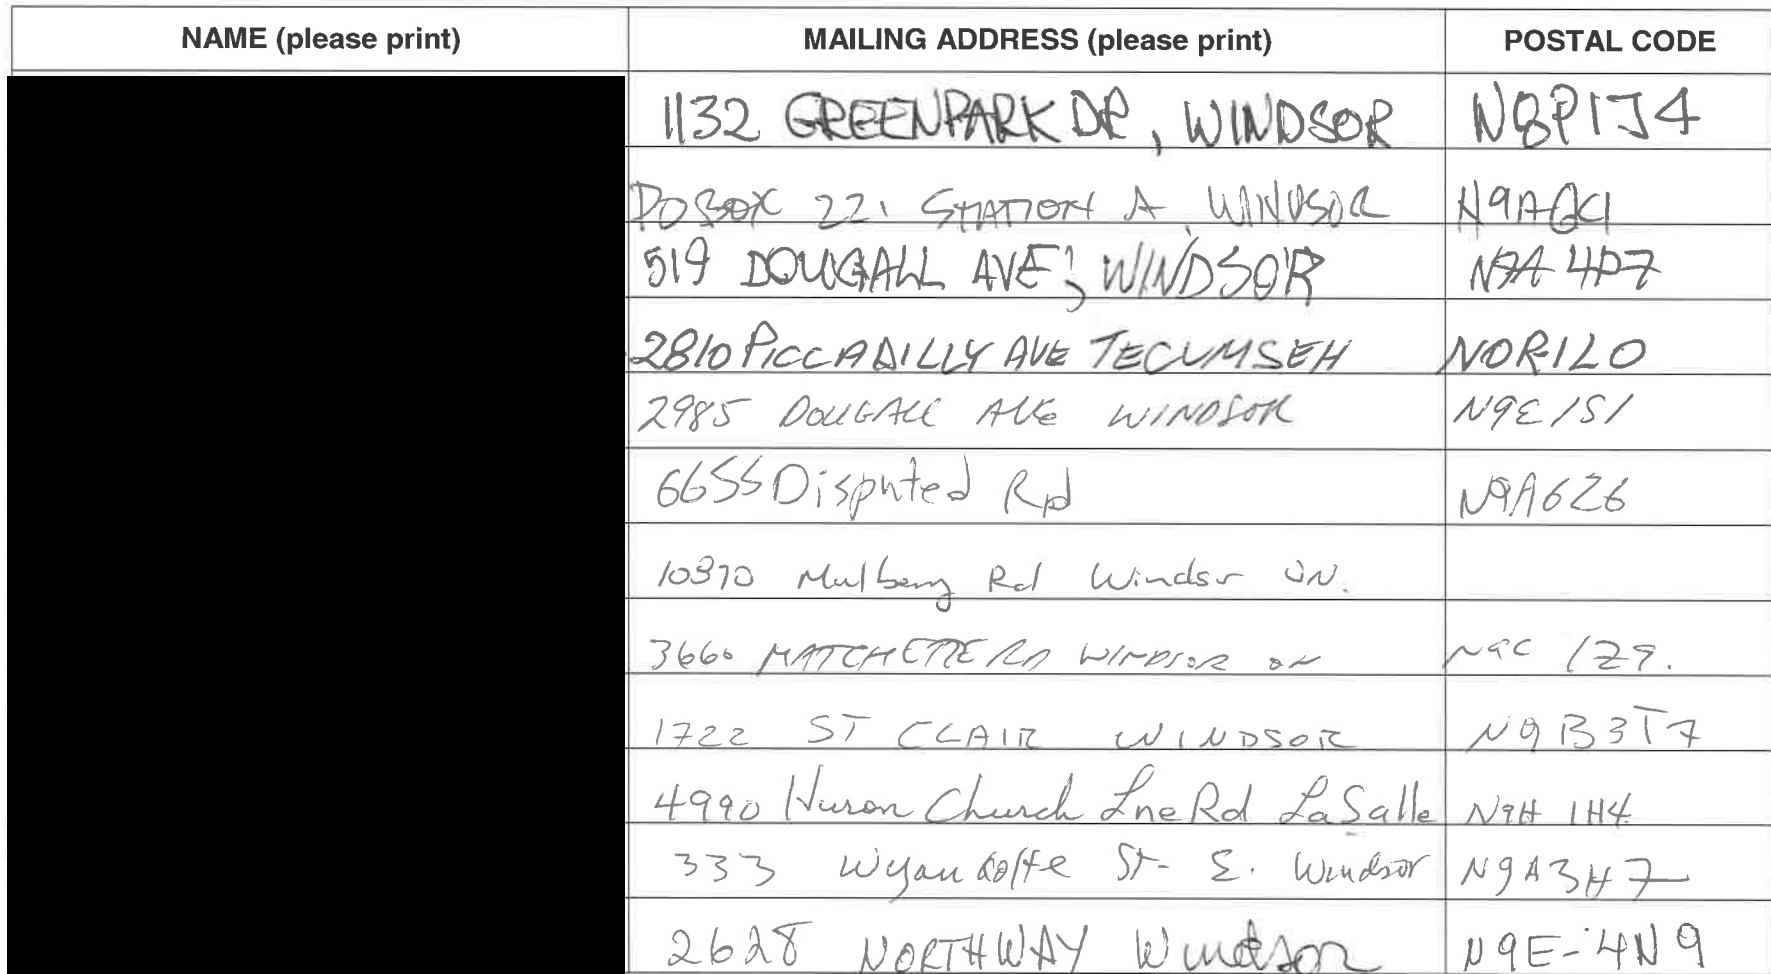 NAME (please print) MAILING ADDRESS (please print) POSTAL CODE
1132 GREENPARK DR, WINDSOR N8P1J4
PO BOX 221 STATION A WINDSOR N9A6C1
519 DOUGALL AVE, WINDSOR N9A 4P7
2810 PICCADILLY AVE TECUMSEH N0R1L0
2985 DOUGALL AVE WINDSOR N9E 1S1
6655 Disputed Rd N9A6Z6
10370 Mulberry Rd Windsor ON.
3660 MATCHETTE RD WINDSOR ON N9C 1Z9.
1722 ST CLAIR WINDSOR N9B3T7
4990 Huron Church Lne Rd LaSalle N9H 1H4
333 Wyandotte St- E. Windsor N9A3H7
2628 NORTHWAY Windsor N9E-4N9